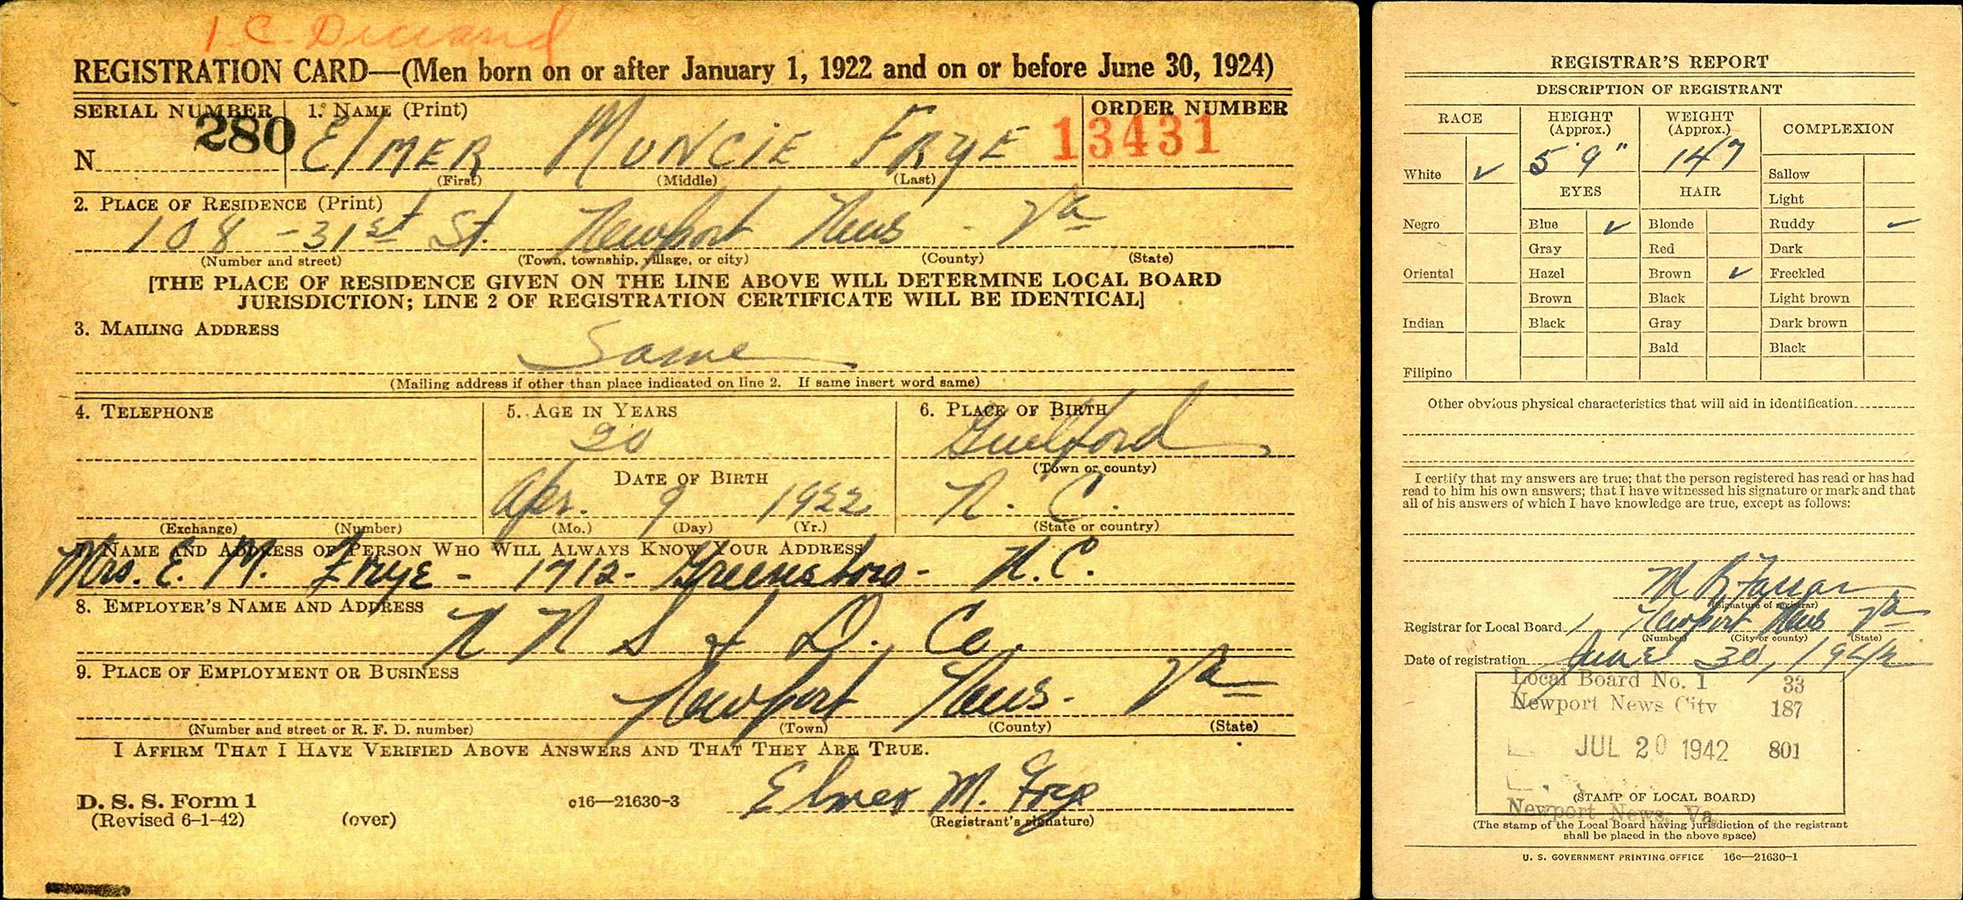 REGISTRATION CARD—(Men born on or after January 1, 1922 and on or before June 30, 1924)
SERIAL NUMBER
1. NAME (Print)
ORDER NUMBER
N 280
ELMER MUNCIE FRYE
13431
(First) (Middle) (Last)
2. PLACE OF RESIDENCE (Print)
108 - 31st St. Newport News - Va
(Number and street) (Town, township, village, or city) (County) (State)
[THE PLACE OF RESIDENCE GIVEN ON THE LINE ABOVE WILL DETERMINE LOCAL BOARD
JURISDICTION; LINE 2 OF REGISTRATION CERTIFICATE WILL BE IDENTICAL]
3. MAILING ADDRESS
Same
(Mailing address if other than place indicated on line 2. If same insert word same)
4. TELEPHONE
(Exchange) (Number)
5. AGE IN YEARS
20
DATE OF BIRTH
Apr. 9 1922
(Mo.) (Day) (Yr.)
6. PLACE OF BIRTH
Guilford
(Town or county)
N. C.
(State or country)
NAME AND ADDRESS OF PERSON WHO WILL ALWAYS KNOW YOUR ADDRESS
Mrs. E. M. Frye - 1712 - Greensboro - N.C.
8. EMPLOYER'S NAME AND ADDRESS
N N S & D. Co.
9. PLACE OF EMPLOYMENT OR BUSINESS
Newport News - Va
(Number and street or R. F. D. number) (Town) (County) (State)
I AFFIRM THAT I HAVE VERIFIED ABOVE ANSWERS AND THAT THEY ARE TRUE.
Elmer M. Frye
D. S. S. Form 1
(Revised 6-1-42) (over)
c16—21630-3
(Registrant's signature)
REGISTRAR'S REPORT
DESCRIPTION OF REGISTRANT
RACE
White ✓
Negro
Oriental
Indian
Filipino
HEIGHT
(Approx.)
5' 9"
WEIGHT
(Approx.)
147
EYES
Blue ✓
Gray
Hazel
Brown
Black
HAIR
Blonde
Red
Brown ✓
Black
Gray
Bald
COMPLEXION
Sallow
Light
Ruddy ✓
Dark
Freckled
Light brown
Dark brown
Black
Other obvious physical characteristics that will aid in identification
I certify that my answers are true; that the person registered has read or has had
read to him his own answers; that I have witnessed his signature or mark and that
all of his answers of which I have knowledge are true, except as follows:
(Signature of registrar)
Registrar for Local Board 1 Newport News Va
(Number) (City or county) (State)
Date of registration June 30, 1942
Local Board No. 1 33
Newport News City 187
JUL 20 1942 801
(STAMP OF LOCAL BOARD)
Newport News, Va.
(The stamp of the Local Board having jurisdiction of the registrant
shall be placed in the above space)
U. S. GOVERNMENT PRINTING OFFICE 16c—21630-1